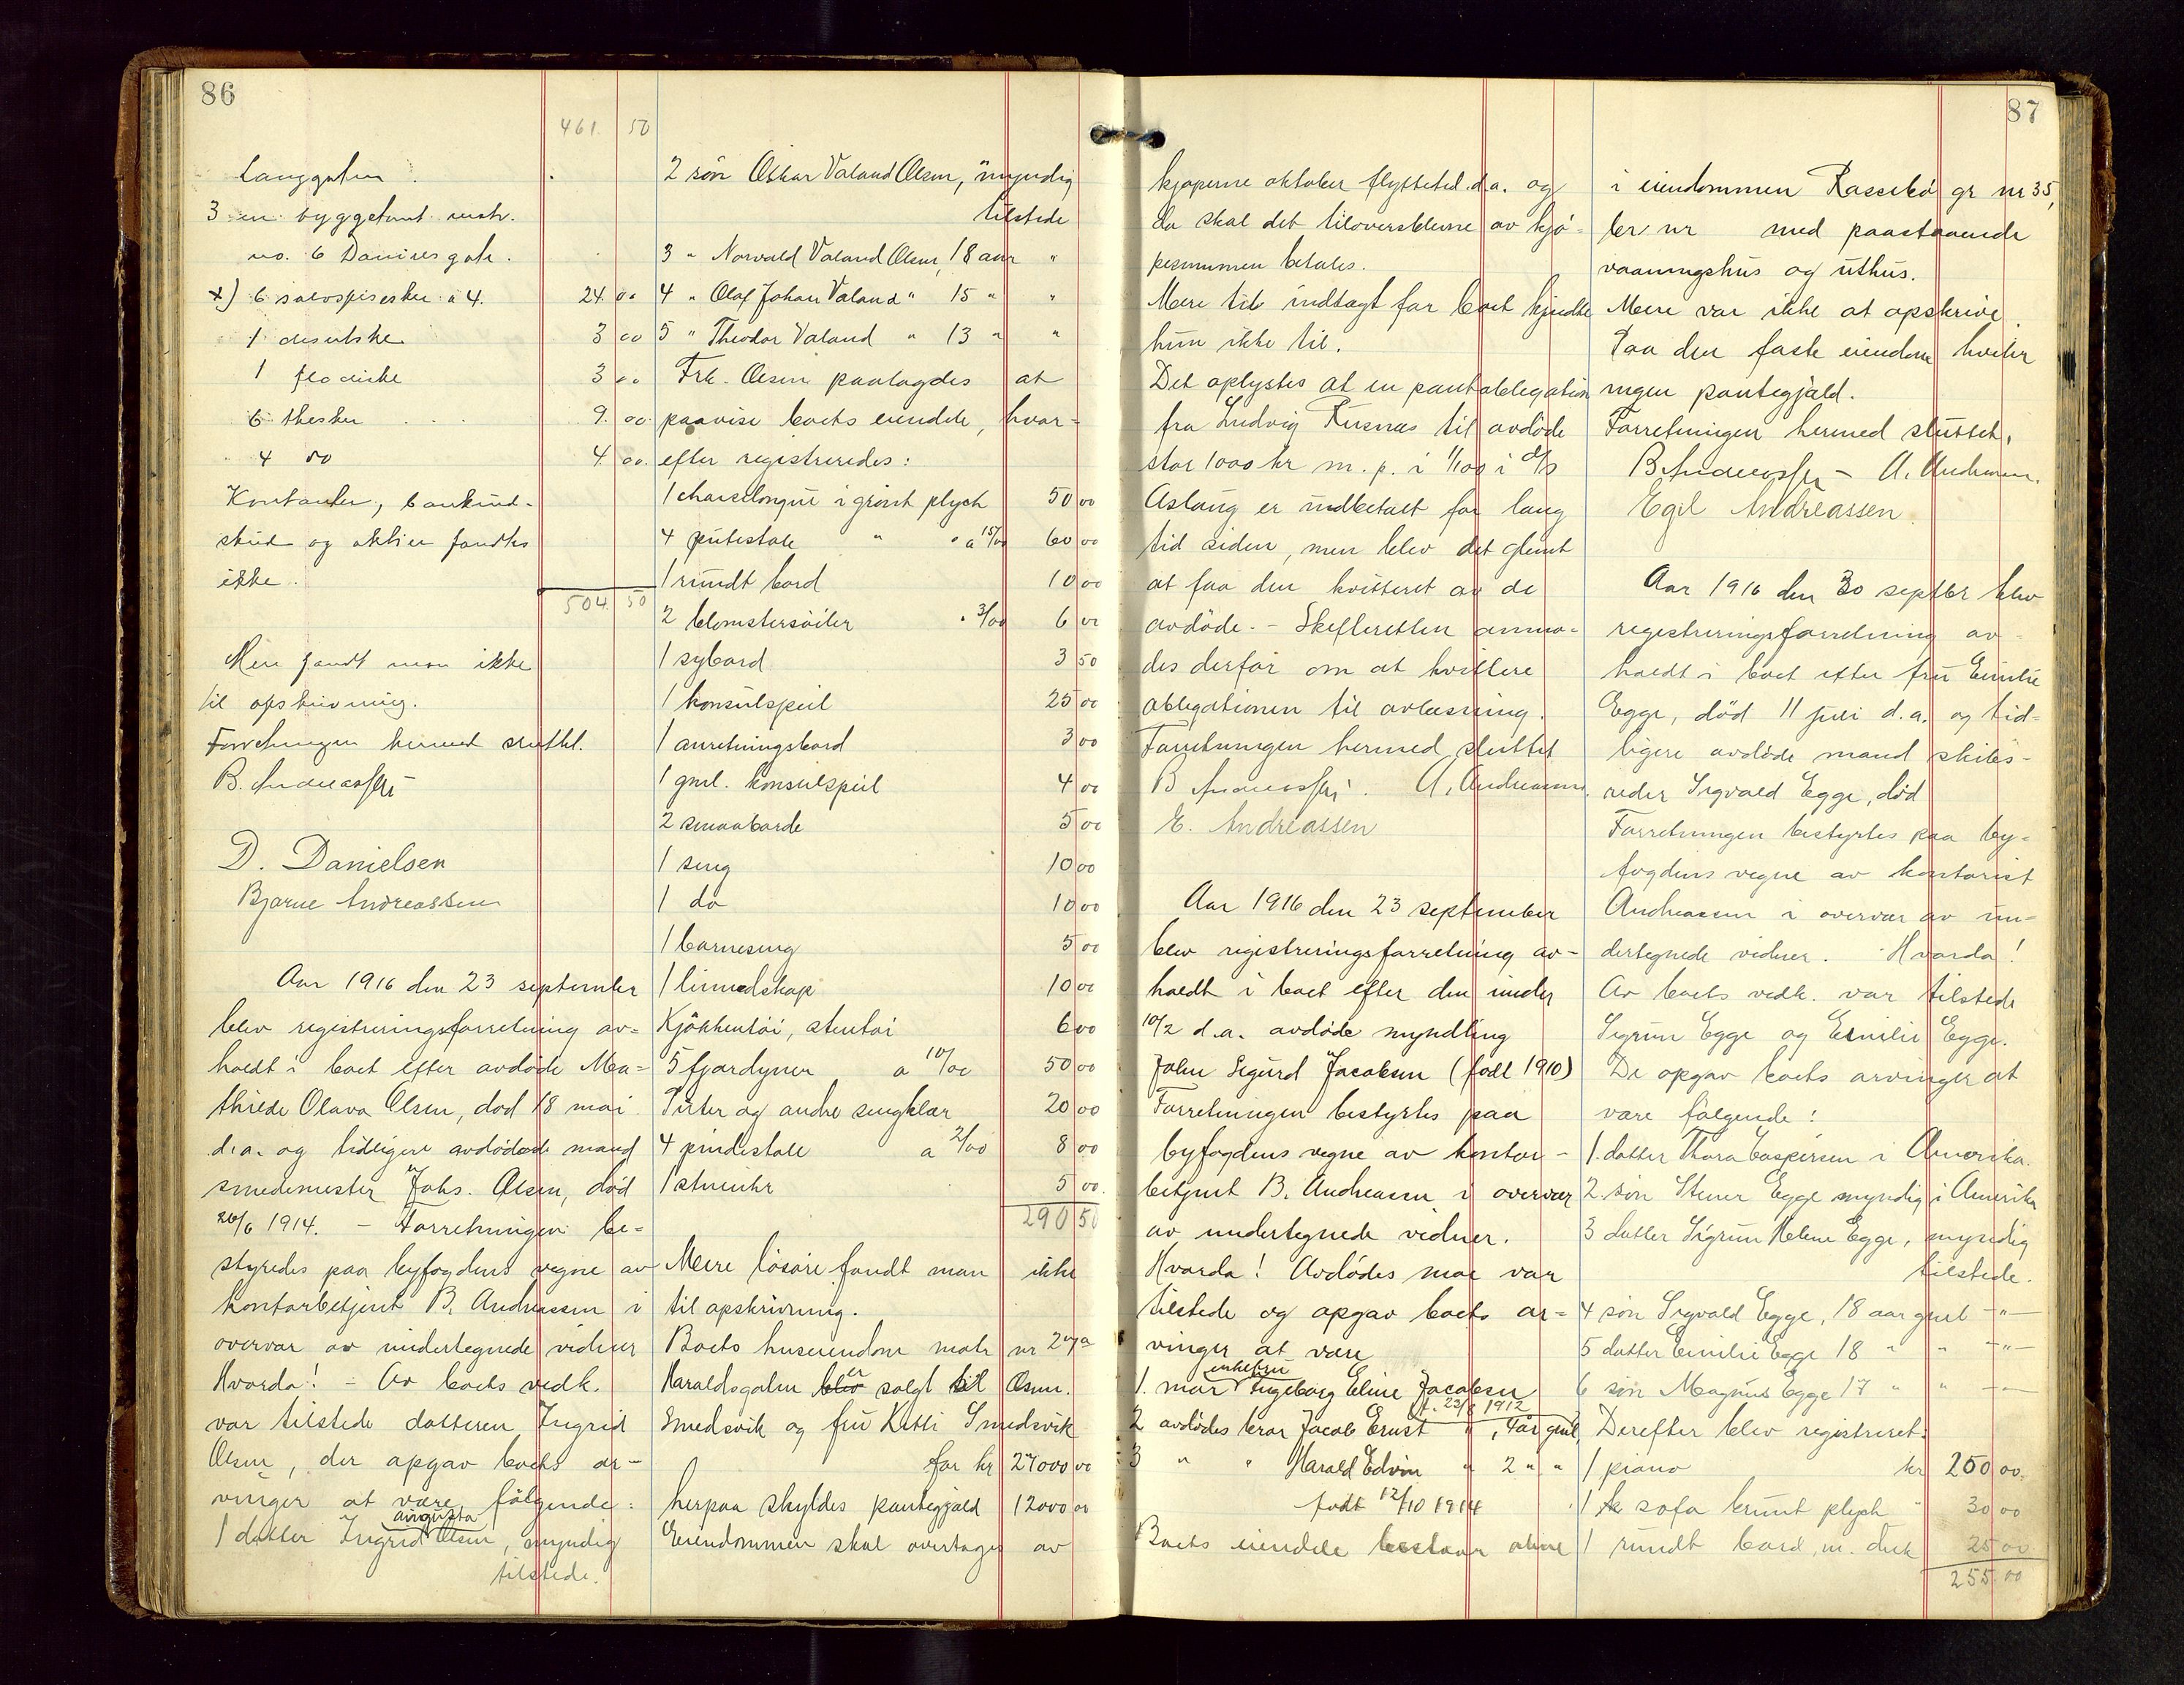 86
461. 50
Langgaten
3 en byggetomt matr.
no. 6 Danielsgate.
x) 6 sølvspiseskeer à 4. 24 00
1 desertske 3 00
1 flødeske 3 00
6 theskeer 9. 00
4 do 4. 00.
Kontanter, bankind-
skud og aktier fandtes
ikke.
504 50
Mere fandt man ikke
til opskrivning.
Forretningen hermed sluttet.
B. Andreassen
D. Danielsen
Bjarne Andreassen
Aar 1916 den 23 september
blev registreringsforretning av-
holdt i boet efter avdøde Ma-
thilde Olava Olsen, død 18 mai
d.a. og tidligere avdøde mand
smedemester Johs. Olsen, død
26/6 1914. – Forretningen be-
styredes paa byfogdens vegne av
kontorbetjent B. Andreassen i
overvær av undertegnede vidner
Hvorda! – Av boets vedk.
var tilstede datteren Ingrid
Olsen, der opgav boets ar-
vinger at være følgende:
augusta
1 datter Ingrid Olsen, myndig
tilstede.
2 søn Oskar Valand Olsen, myndig
tilstede
3 " Norvald Valand Olsen, 18 aar "
4 " Olaf Johan Valand " 15 " "
5 " Theodor Valand " 13 " "
Frk. Olsen paalagdes at
paavise boets eiendele, hvor-
efter registreredes:
1 chaiselongue i grønt plych 50 00
4 putestole " " a 15/00 60 00
1 rundt bord 10 00
2 blomstersøiler " 3/00 6 00
1 sybord 3 50
1 konsulspeil 25 00
1 anretningsbord 3 00
1 gml. konsulspeil 4 00
2 smaaborde 5 00
1 seng 10 00
1 do 10 00
1 barneseng 5 00
1 linnedskap 10 00
Kjøkkentøi, stentøi 6 00
5 fjærdyner a 10/00 50 00
Puter og andre sengklær 20 00
4 pindestole a 2/00 8 00
1 stueuhr 5 00.
290 50
Mere løsøre fandt man ikke
til opskrivning.
Boets huseiendom matr nr 247a
er
Haraldsgaten blev solgt til Osmn.
Smedsvik og fru Kitti Smedsvik
for kr 27000 00
herpaa skyldes pantegjæld 12000 00
Eiendommen skal overtages av
87
kjøperne oktober flyttetid d.a. og
da skal det tiloversblevne av kjø-
pesummen betales.
Mere til indtægt for boet kjendte
hun ikke til.
Det oplystes at en pantobligation
fra Ludvig til avdøde
stor 1000 kr m. p. i 1/100 i d/s
Aslaug er indbetalt for lang
tid siden, men blev det glemt
at faa den kvitteret av de
avdøde. – Skifteretten anmo-
des derfor om at kvittere
obligationen til avlæsning.
Forretningen hermed sluttet
B Andreassen. A. Andreassen.
E. Andreassen
Aar 1916 den 23 september
blev registreringsforretning av-
holdt i boet efter den under
10/2 d.a. avdøde myndling
John Sigurd Jacobsen (født 1910)
Forretningen bestyrtes paa
byfogdens vegne av kontor-
betjent B. Andreassen i overvær
av undertegnede vidner.
Hvorda! Avdødes mor var
tilstede og opgav boets ar-
vinger at være
enkefru
1. mor Ingeborg Eline Jacobsen
f. 23/8 1912
2 avdødes bror Jacob Ernst " , 4 år gml.
3 " " Harald Edvin " 2 " "
født 12/10 1914
Boets eiendele bestaar alene
i eiendommen Rassebø gr nr 35,
br. nr med paastaaende
vaaningshus og uthus.
Mere var ikke at opskrive.
Paa den faste eiendom hviler
ingen pantegjæld.
Forretningen hermed sluttet.
B Andreassen – A. Andreassen.
Egil Andreassen
Aar 1916 den 30 septbr blev
registreringsforretning av-
holdt i boet efter fru Emilie
Egge, død 11 juli d.a. og tid-
ligere avdøde mand skibs-
reder Sigvald Egge, død
Forretningen bestyrtes paa by-
fogdens vegne av kontorist
Andreassen i overvær av un-
dertegnede vidner. Hvorda!
Av boets vedk. var tilstede
Sigrun Egge og Emilie Egge.
De opgav boets arvinger at
være følgende:
1. datter Thora Caspersen i Amerika.
2. søn Stener Egge myndig i Amerika
3 datter Sigrun Helene Egge, myndig
tilstede.
4 søn Sigvald Egge, 18 aar gml –"–
5 datter Emilie Egge 18 " " –"–
6 søn Magnus Egge 17 " " –"–
Derefter blev registreret:
1 piano kr 200 00.
1 sofa brunt plych " 30 00
1 rundt bord m. duk 25 00
255 00